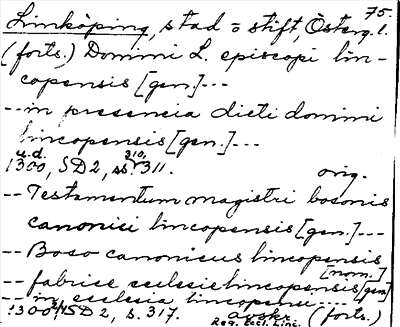 75.
Linköping, stad o stift, Österg. l.
(forts.) Domini L. episcopi lin-
copensis [gen.]---
--in presencia dicti domini
lincopensis [gen.]---
u.d. 310,
1300, SD2, ss. 311. orig.
--Testamentum magistri bosonis
canonici lincopensis [gen.]---
--Boso canonicus lincopensis
[nom.]
--fabrice ecclesie lincopensis [gen]
--in ecclesia lincopensi---
1300 SD2, s. 317. avskr. (forts.)
Reg. Eccl. Linc.